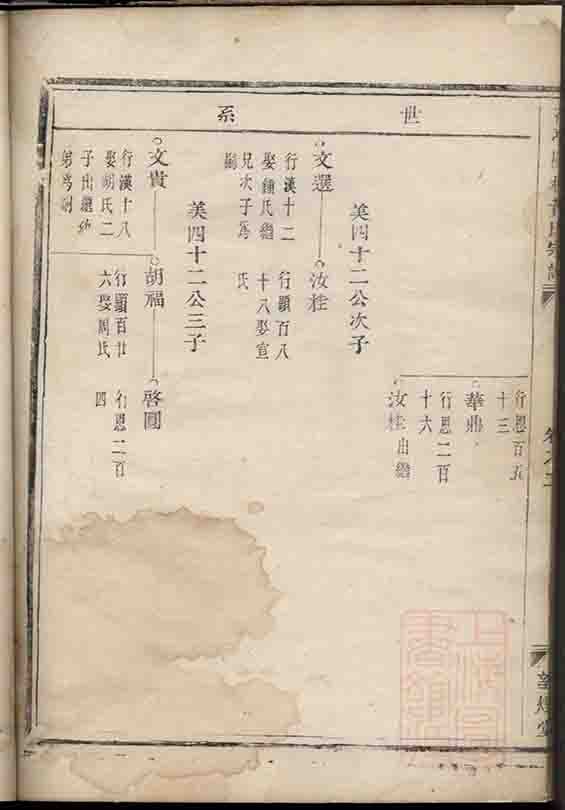 世系
行恩百五
十三
華鼎
行恩二百
十六
汝桂出繼
美四十二公次子
文選
行漢十二
娶鍾氏繼
兄次子爲
嗣
汝桂
行顯百八
十八娶宣
氏
美四十二公三子
文貴
行漢十八
娶胡氏二
子出繼
弟爲嗣
胡福
行顯百廿
六娶周氏
啓圓
行恩二百
四
黃氏宗譜
卷之二
上海圖書館